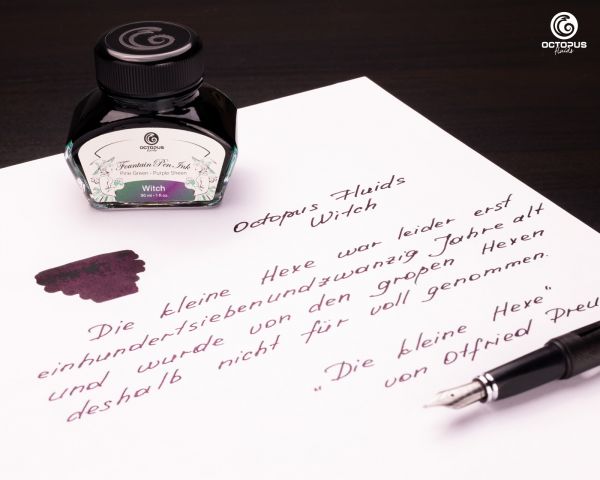 OCTOPUS
fluids
OCTOPUS
Fountain Pen Ink
Pine Green - Purple Sheen
Witch
30 ml - 1 fl.oz.
Octopus Fluids
Witch
Die kleine Hexe war leider erst
einhundertsiebenundzwanzig Jahre alt
und wurde von den großen Hexen
deshalb nicht für voll genommen.
"Die kleine Hexe"
von Otfried Preu